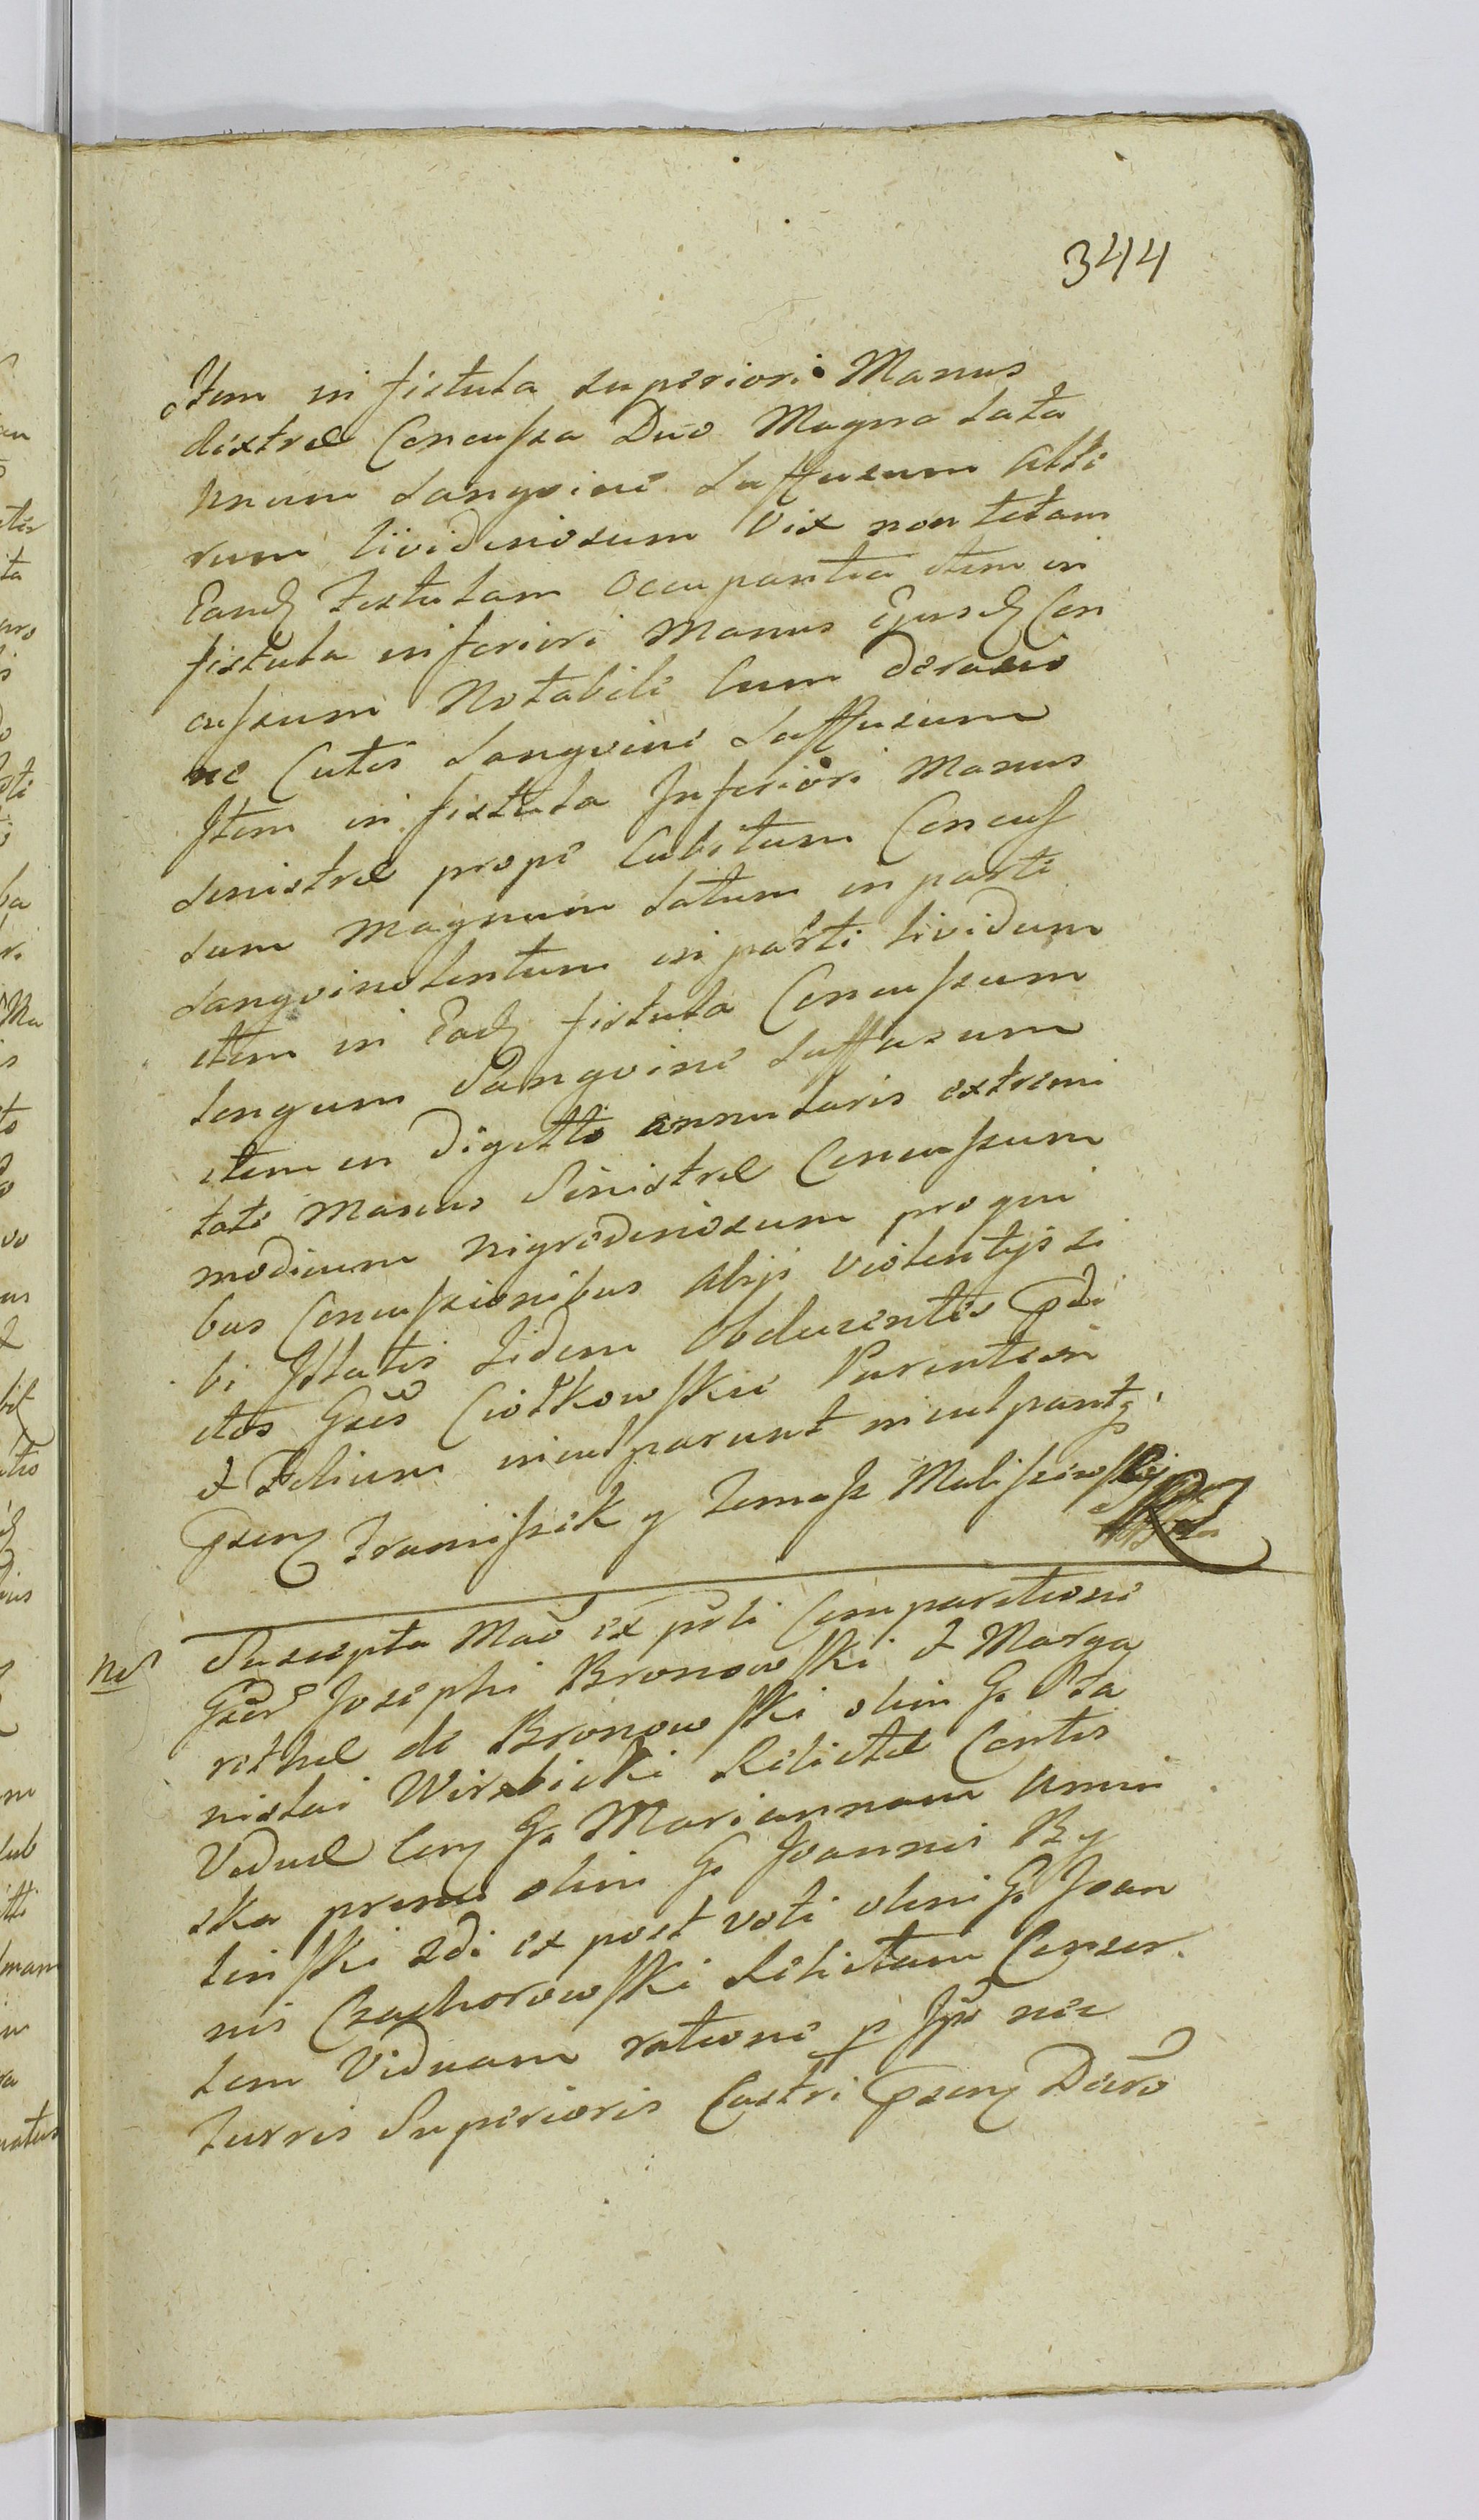 344
Item in fistula superiori Manus
dextræ Concussa Duo Magna Lata
Unum Sangvine Suffusum Alte
rum lividinosum vix non totam
Eand fistulam occupantia item in
fistula inferiori Manus Ejusd Con
cussum Notabile cum derasio
ne Cutis Sangvine Suffusum
Item in fistula Inferiori Manus
Sinistræ prope Cubitum Concus
sum Magnum Latum in parte
Sangvinolentum in parte lividum
item in Ead fistula Concussum
longum Sangvine Suffusum
item in Digitto annularis extremi
tate Manus Sinistræ Concussum
modicum nigredinosum pro qui
bus Concussionibus alijs violentijs si
bi Illatis Iidem Obducentes
ctos Gsos Ciołkowskie Parentem
et Filium inculparunt inculpant
Franciszek y Tomasz Maliszewski
Nd
Suscepta Mao ex psti Comparitione
Gsor Josephi Bronowski et Marga
rethæ de Bronowski olim G. Sta
nislai Wierzbicki Relictæ Contis
Viduæ Con G. Mariannam
ska primi olim G. Joannis By
linski 2di ex post voti olim G. Joan
nis Czachorowski Relictam Conser
tem Viduam ratione p Ipso nec
Turris Superioris Castri